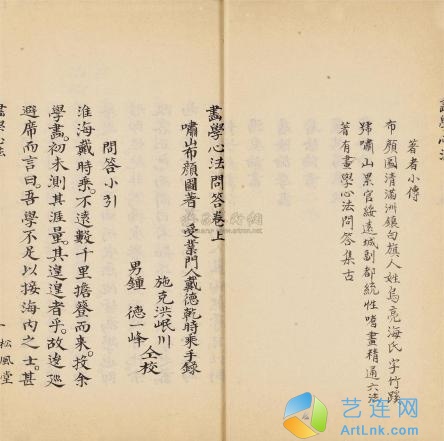 畫學心法
著者小傳
布顏圖清滿洲鑲白旗人姓烏亮海氏字竹蹊
號嘯山累官綏遠城副都統性嗜畫精通六法
著有畫學心法問答集古
畫學心法問答卷上
嘯山布顏圖著 受業門人戴德乾時乘手錄
施克洪岷川
男鍾 德一峰 仝校
問答小引
淮海戴時乘。不遠數千里擔簦而來。投余
學畫。初未測其涯量。其遑遑者乎。故逡巡
避席而言曰。吾學不足以接海內之士。甚
畫學心法
一 松風堂
www.artron.net
艺连网
ArtLnk.com